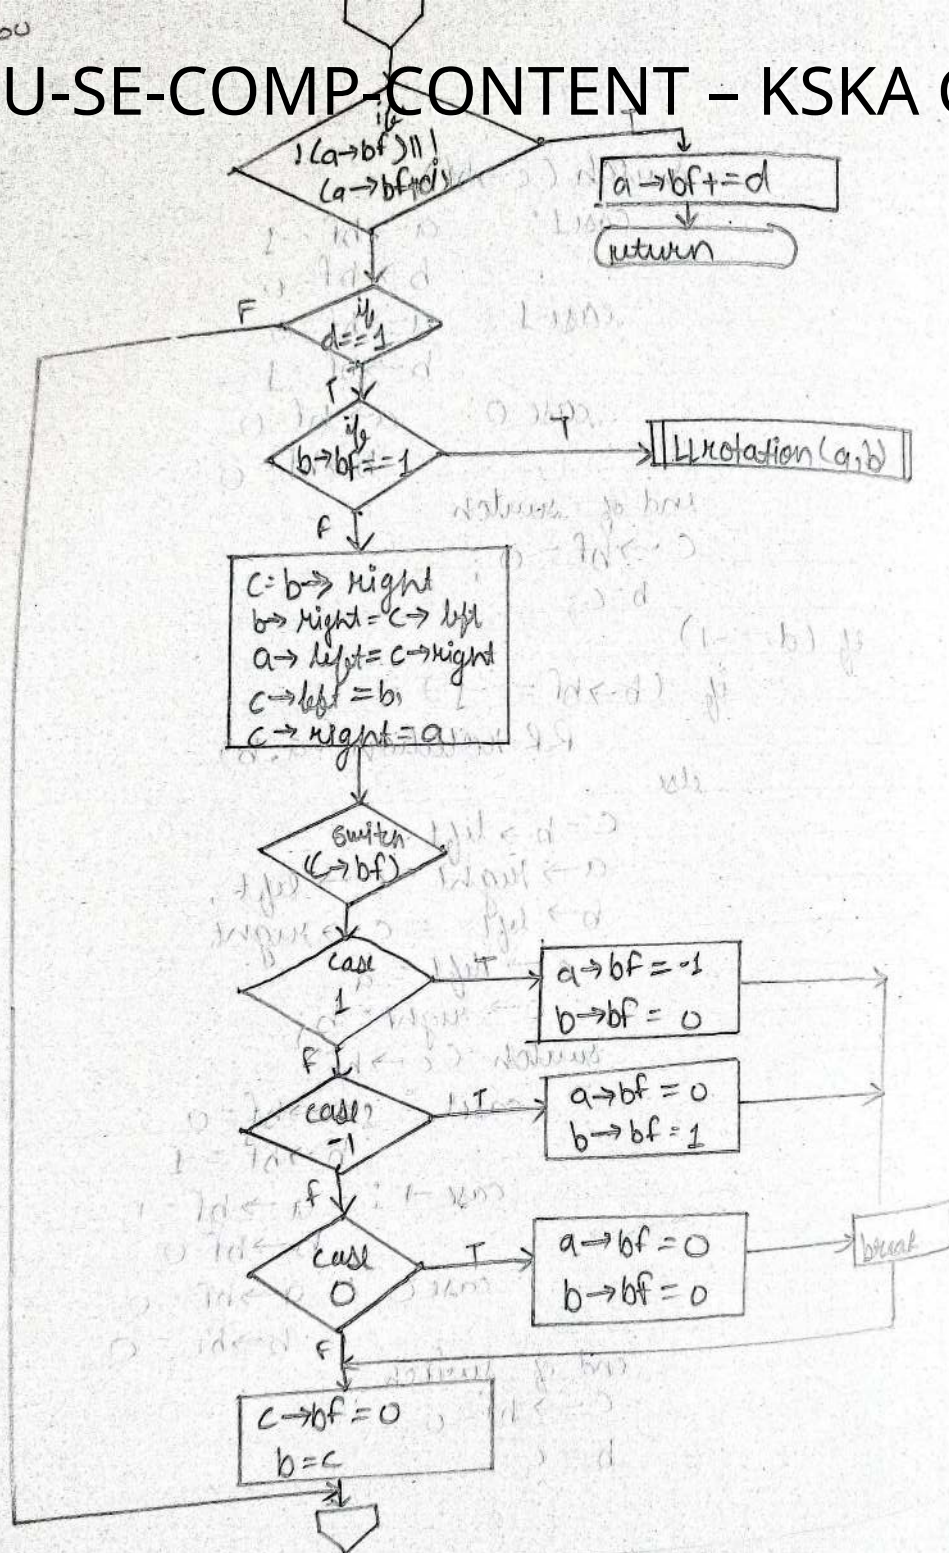 U-SE-COMP-CONTENT – KSKA
if
!(a→bf)||!
T
a→bf+=d
return
F
if
d==1
T
if
b→bf==1
T
LLrotation(a,b)
F
c=b→right
b→right=c→left
a→left=c→right
c→left=b,
c→right=a
switch
(c→bf)
case
1
T
a→bf=-1
b→bf=0
F
case
-1
T
a→bf=0
b→bf=1
f
case
0
T
a→bf=0
b→bf=0
break
F
c→bf=0
b=c